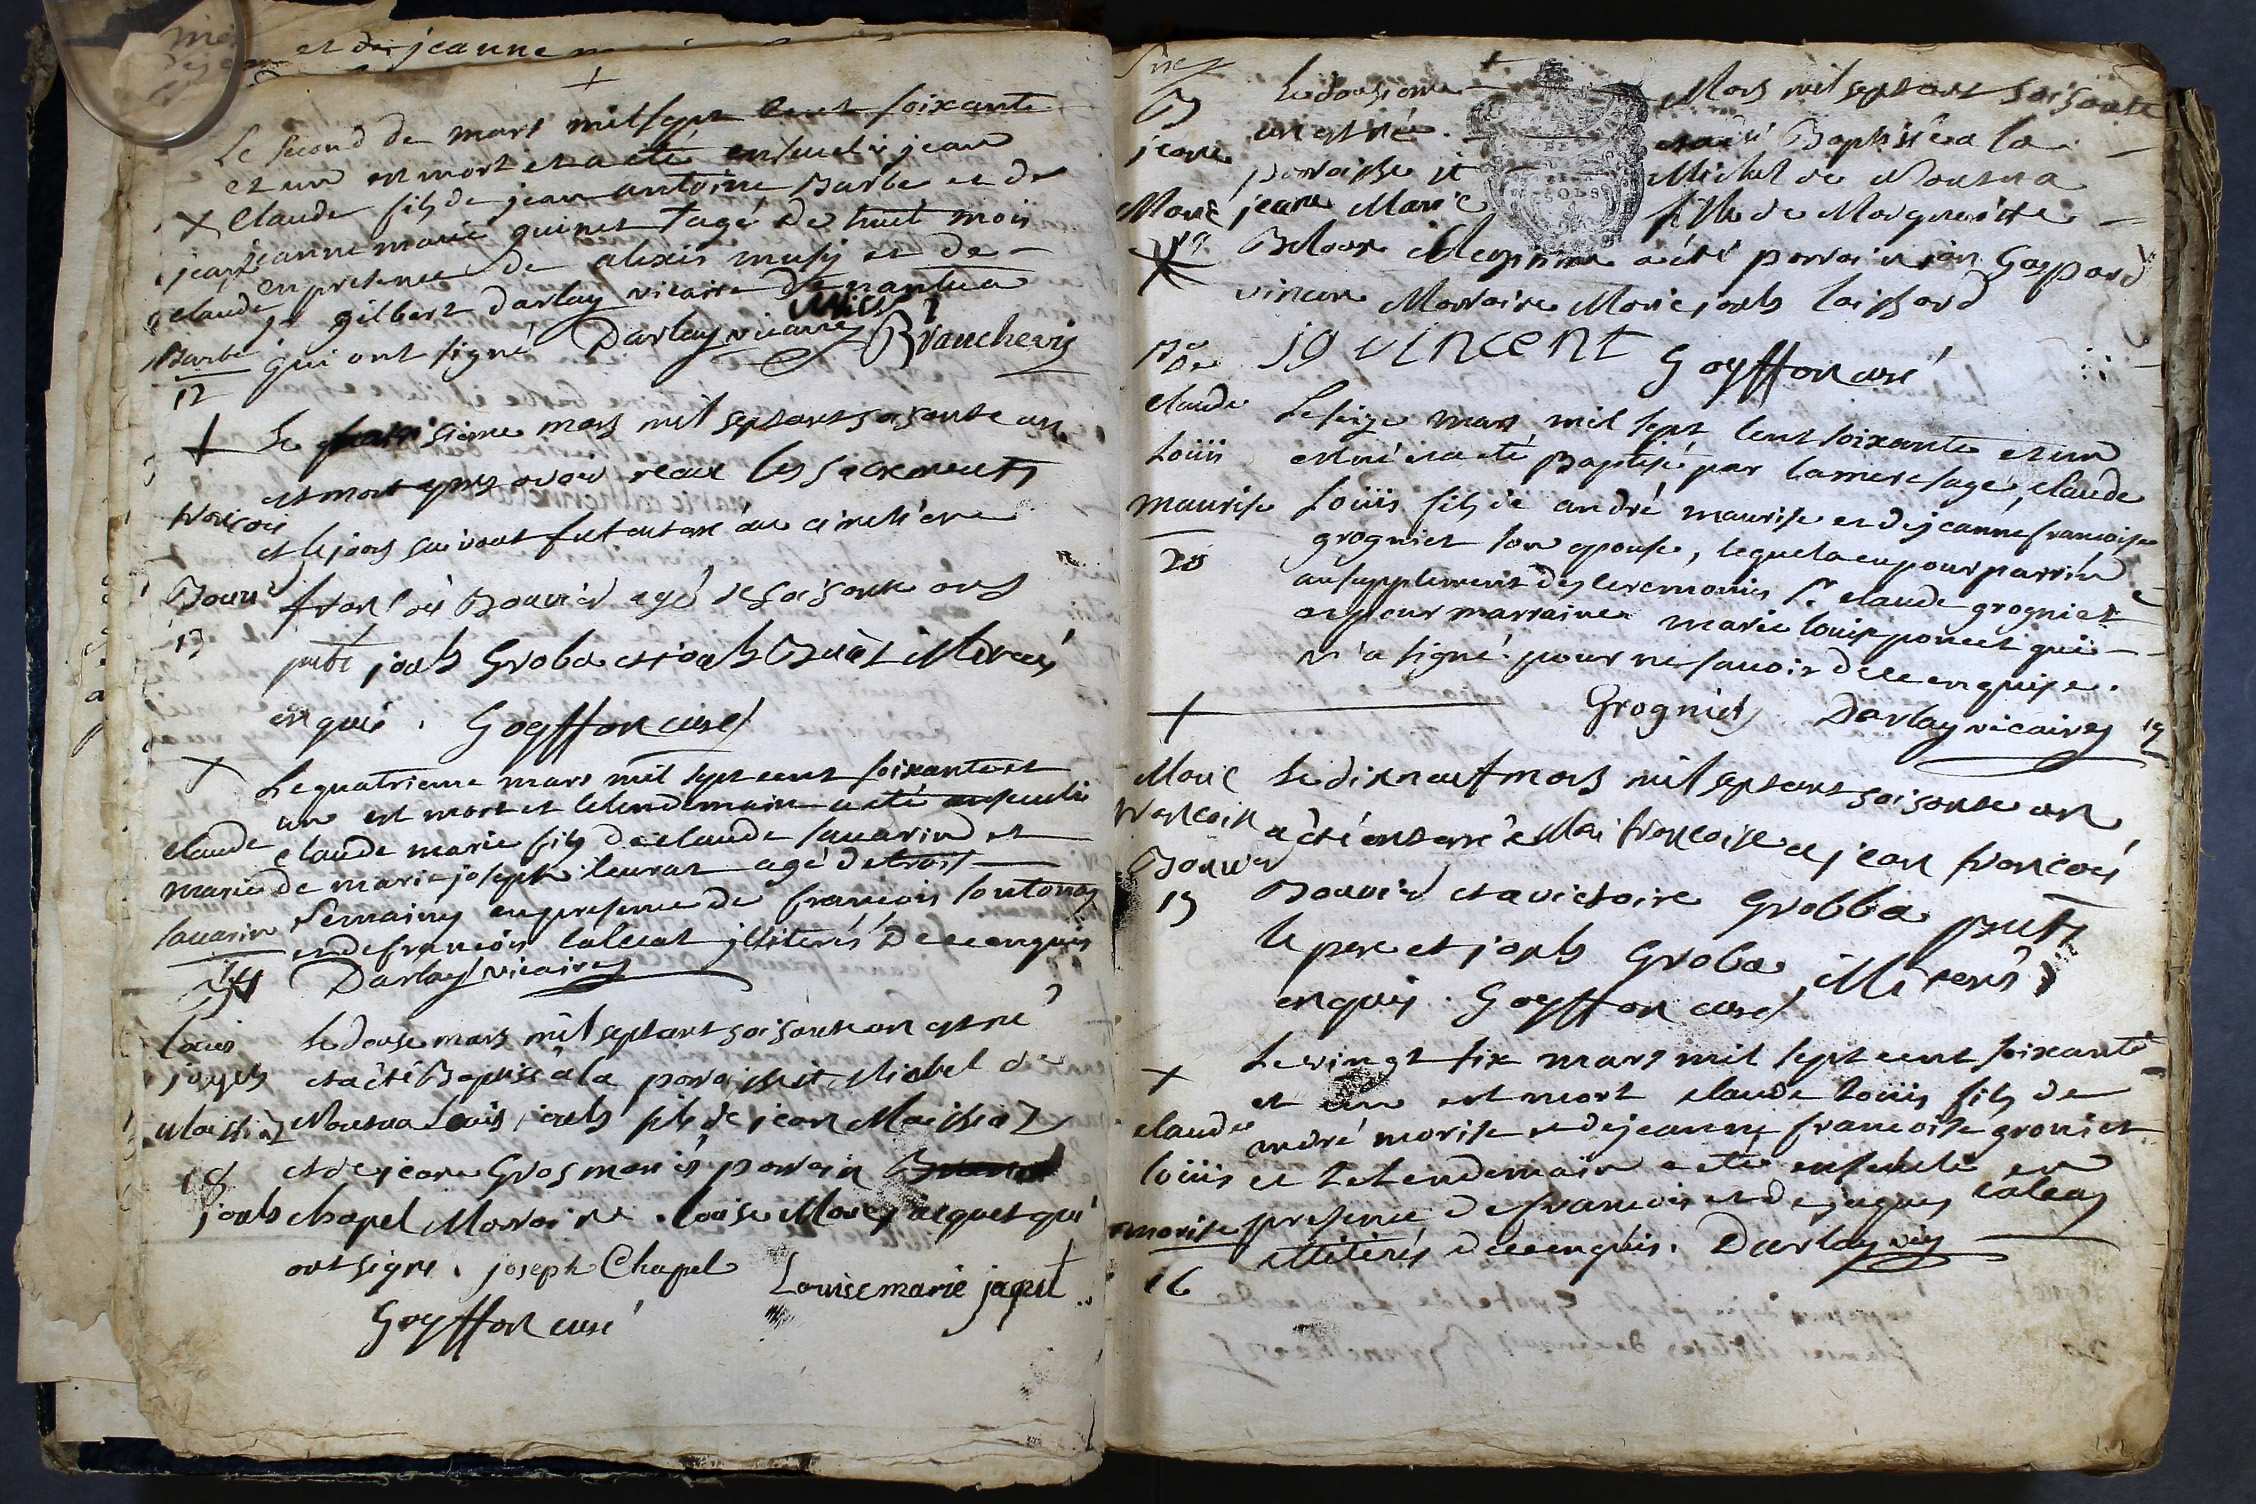 et de jeanne
Le second de mars mil sept cent soixante
et un est mort et a eté enseueli jean
Claude fils de jean antoine Barbe et de
jeanne marie guinet agé de huit mois
en presence de alexis musy et de
jean
claude
Barbe
12
gilbert darlay vicaire de nantua
qui ont signé Darlay vicaire
Le sieme mars mil sept cent soisante un
est mort apres avoir recu les sacrements
et le jours suivant fut enterré au cimetiere
francois Bouvier agé de soisante ans
francois
Bouvier
13
pnts josph Groba et josph illiterés
enquis. Goyffon curé
Le quatrieme mars mil sept cent soixante et
un est mort et le lendemain a eté enseueli
claude marie fils de claude sauarin et
de marie joseph leurat agé de trois
semaines en presence de francois
et de francois calleat illiterés de ce enquis
Darlay vicaire
claude
marie
sauarin
14
Le douse mars mil sept cent soisante un est né
et a été Baptisé a la paroisse st Michel de
Nantua Louis josph fils de jean Maissiaz
et de jeane Gros mariés parrain
josph Chapel Maraine louise Marie jacquet qui
ont signé. joseph Chapel
Louise marie jaquet
Goyffon curé
Louis
josph
Maissiaz
18
Le dousieme Mars mil sept cent soisante
un est née et a été Baptisée a la
paroisse st Michel de Nantua
jeane Marie fille de Margueritte
a été parrain jean Gaspard
vincent Marraine Marie josph
jeane
Marie
19
jg vincent
Goyffon curé
Le seize mars mil sept cent soixante et un
est né et a eté Baptisé par la mere sage, claude
Loüis fils de andré maurise et de jeanne francoise
grogniet son epouse, lequel a eu pour parrin
au supplement des ceremonies Sr. claude grogniet
et pour marraine marie louise poncet qui
n'a signé pour ne sauoir de ce enquise.
Grogniet Darlay vicaire
claude
Loüis
maurise
20
Le dixneuf mars mil sept cent soisante un
a été enterrée Marie francoise a jean francois
Bouvier et a victoire Grobba pnts
le pere et josph Groba illiterés
enquis. Goyffon curé
Marie
francoise
Bouvier
15
Le vingt six mars mil sept cent soixante
et un est mort claude Loüis fils de
andré morise et de jeanne francoise groniet
et le lendemain a eté enseueli en
presence de francois et de jaques caleas
illiterés de ce enquis. Darlay vic
claude
loüis
morise
16